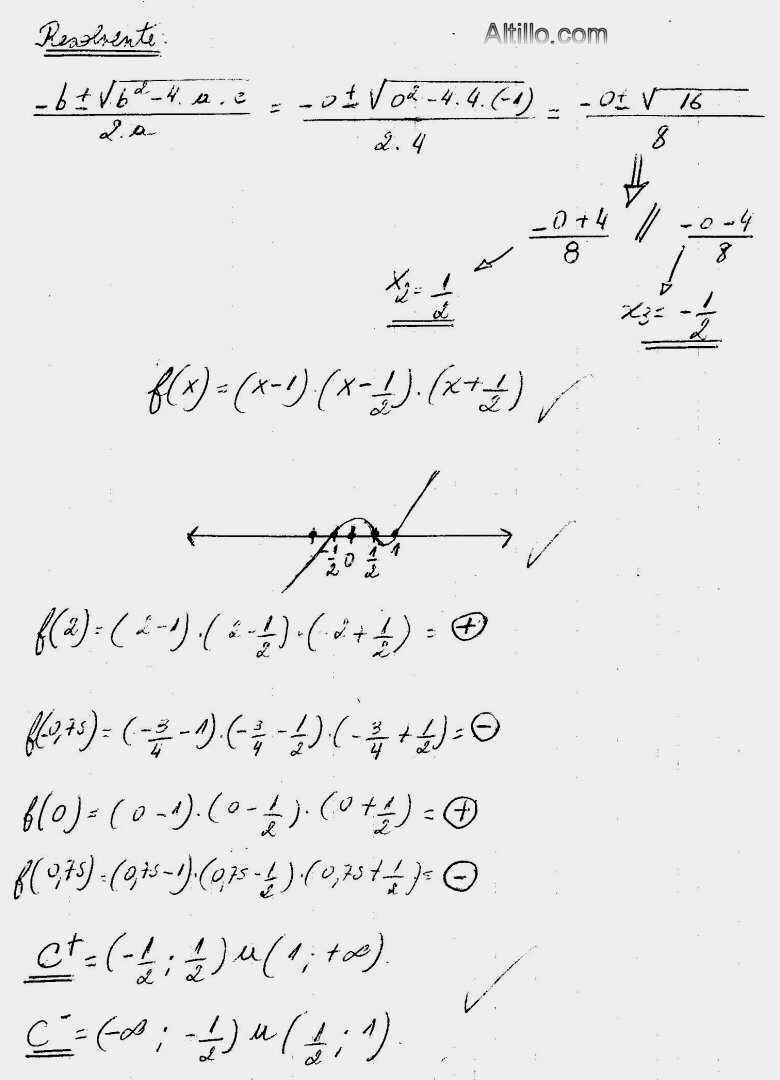 Resolvente:
Altillo.com
(-b ± √(b² - 4 . a . c)) / (2 . a) = (-0 ± √(0² - 4 . 4 . (-1))) / (2 . 4) = (-0 ± √16) / 8
(-0 + 4) / 8 // (-0 - 4) / 8
x₂ = 1/2
x₃ = -1/2
f(x) = (x - 1) . (x - 1/2) . (x + 1/2)
-1/2 0 1/2 1
f(2) = (2 - 1) . (2 - 1/2) . (2 + 1/2) = ⊕
f(-0,75) = (-3/4 - 1) . (-3/4 - 1/2) . (-3/4 + 1/2) = ⊖
f(0) = (0 - 1) . (0 - 1/2) . (0 + 1/2) = ⊕
f(0,75) = (0,75 - 1) . (0,75 - 1/2) . (0,75 + 1/2) = ⊖
C⁺ = (-1/2 ; 1/2) u (1 ; +∞).
C⁻ = (-∞ ; -1/2) u (1/2 ; 1).